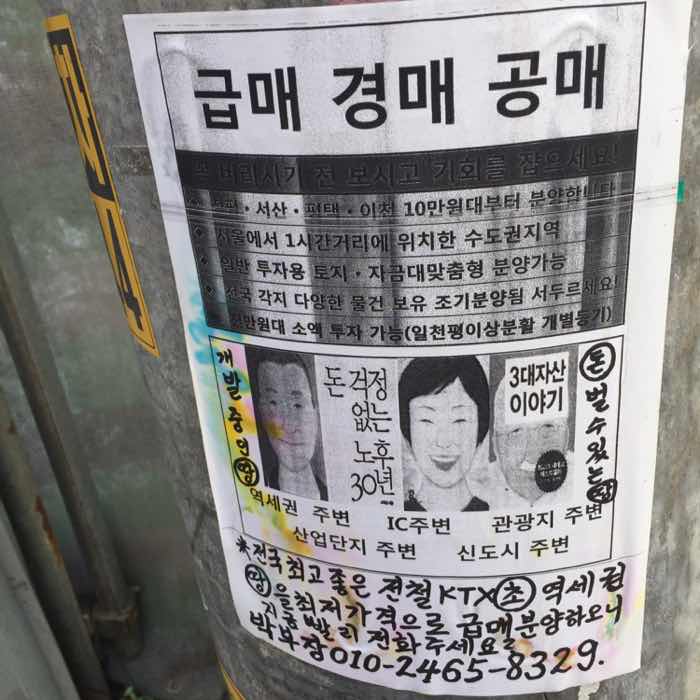 급매 경매 공매
버리시기 전 보시고 기회를 잡으세요!
서산 · 평택 · 이천 10만원대부터 분양합니다
서울에서 1시간거리에 위치한 수도권지역
일반 투자용 토지 · 자금대맞춤형 분양가능
전국 각지 다양한 물건 보유 조기분양됨 서두르세요!
천만원대 소액 투자 가능(일천평이상분활 개별등기)
개발중인땅
돈 걱정
없는
노후
30년
3대자산
이야기
돈벌수있는땅
역세권 주변 IC주변 관광지 주변
산업단지 주변 신도시 주변
*전국최고좋은 전철KTX초역세권
땅을최저가격으로 급매분양하오니
지금빨리 전화주세요
박부장010-2465-8329.